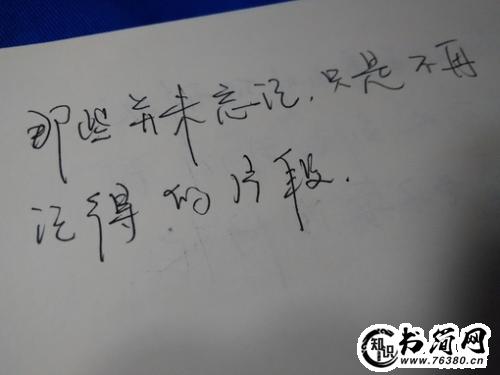 那些并未忘记，只是不再
记得的片段.
知识
书简网
www.76380.cn